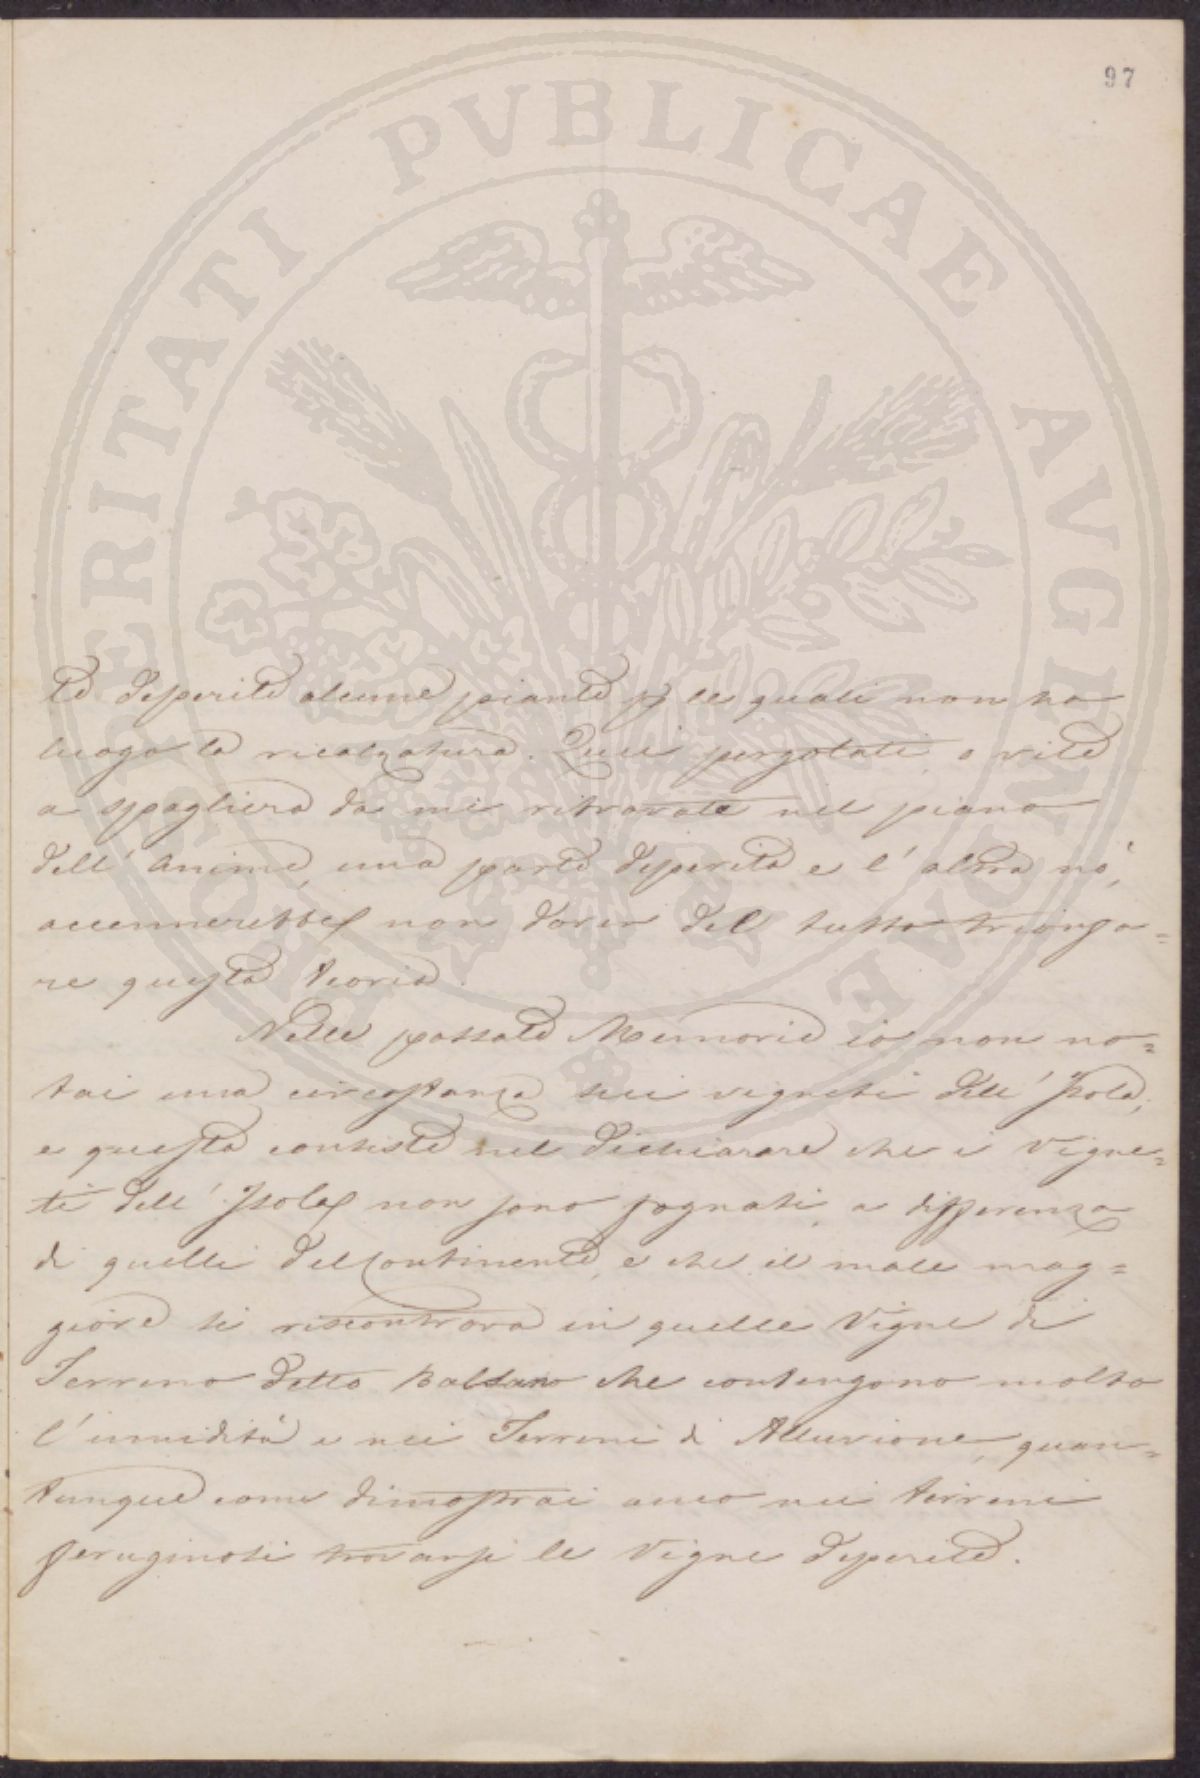 97
PROSPERITATI PVBLICAE AVGENDAE
te deperite alcune piante p le quali non ha
luogo la ricalzatura. Quei pergolati, o vite
a spagliera da me ritrovate nel piano
dell' Anime, una parte deperita e l' altra nò,
accennerebbe non dover del tutto trionfa=
re questa teoria.
Nelle passate Memorie io non no=
tai una circostanza sui vigneti dell' Isola,
e questa consiste nel dichiarare che i Vigne=
ti dell' Isola non sono fognati, a differenza
di quelli del Continente, e che il male mag=
giore si riscontrava in quelle Vigne di
Terreno detto Baldano che contengono molta
l'umidità e nei Terreni di Alluvione, quan=
tunque come dimostrai anco nei terreni
feruginosi trovansi le Vigne deperite.